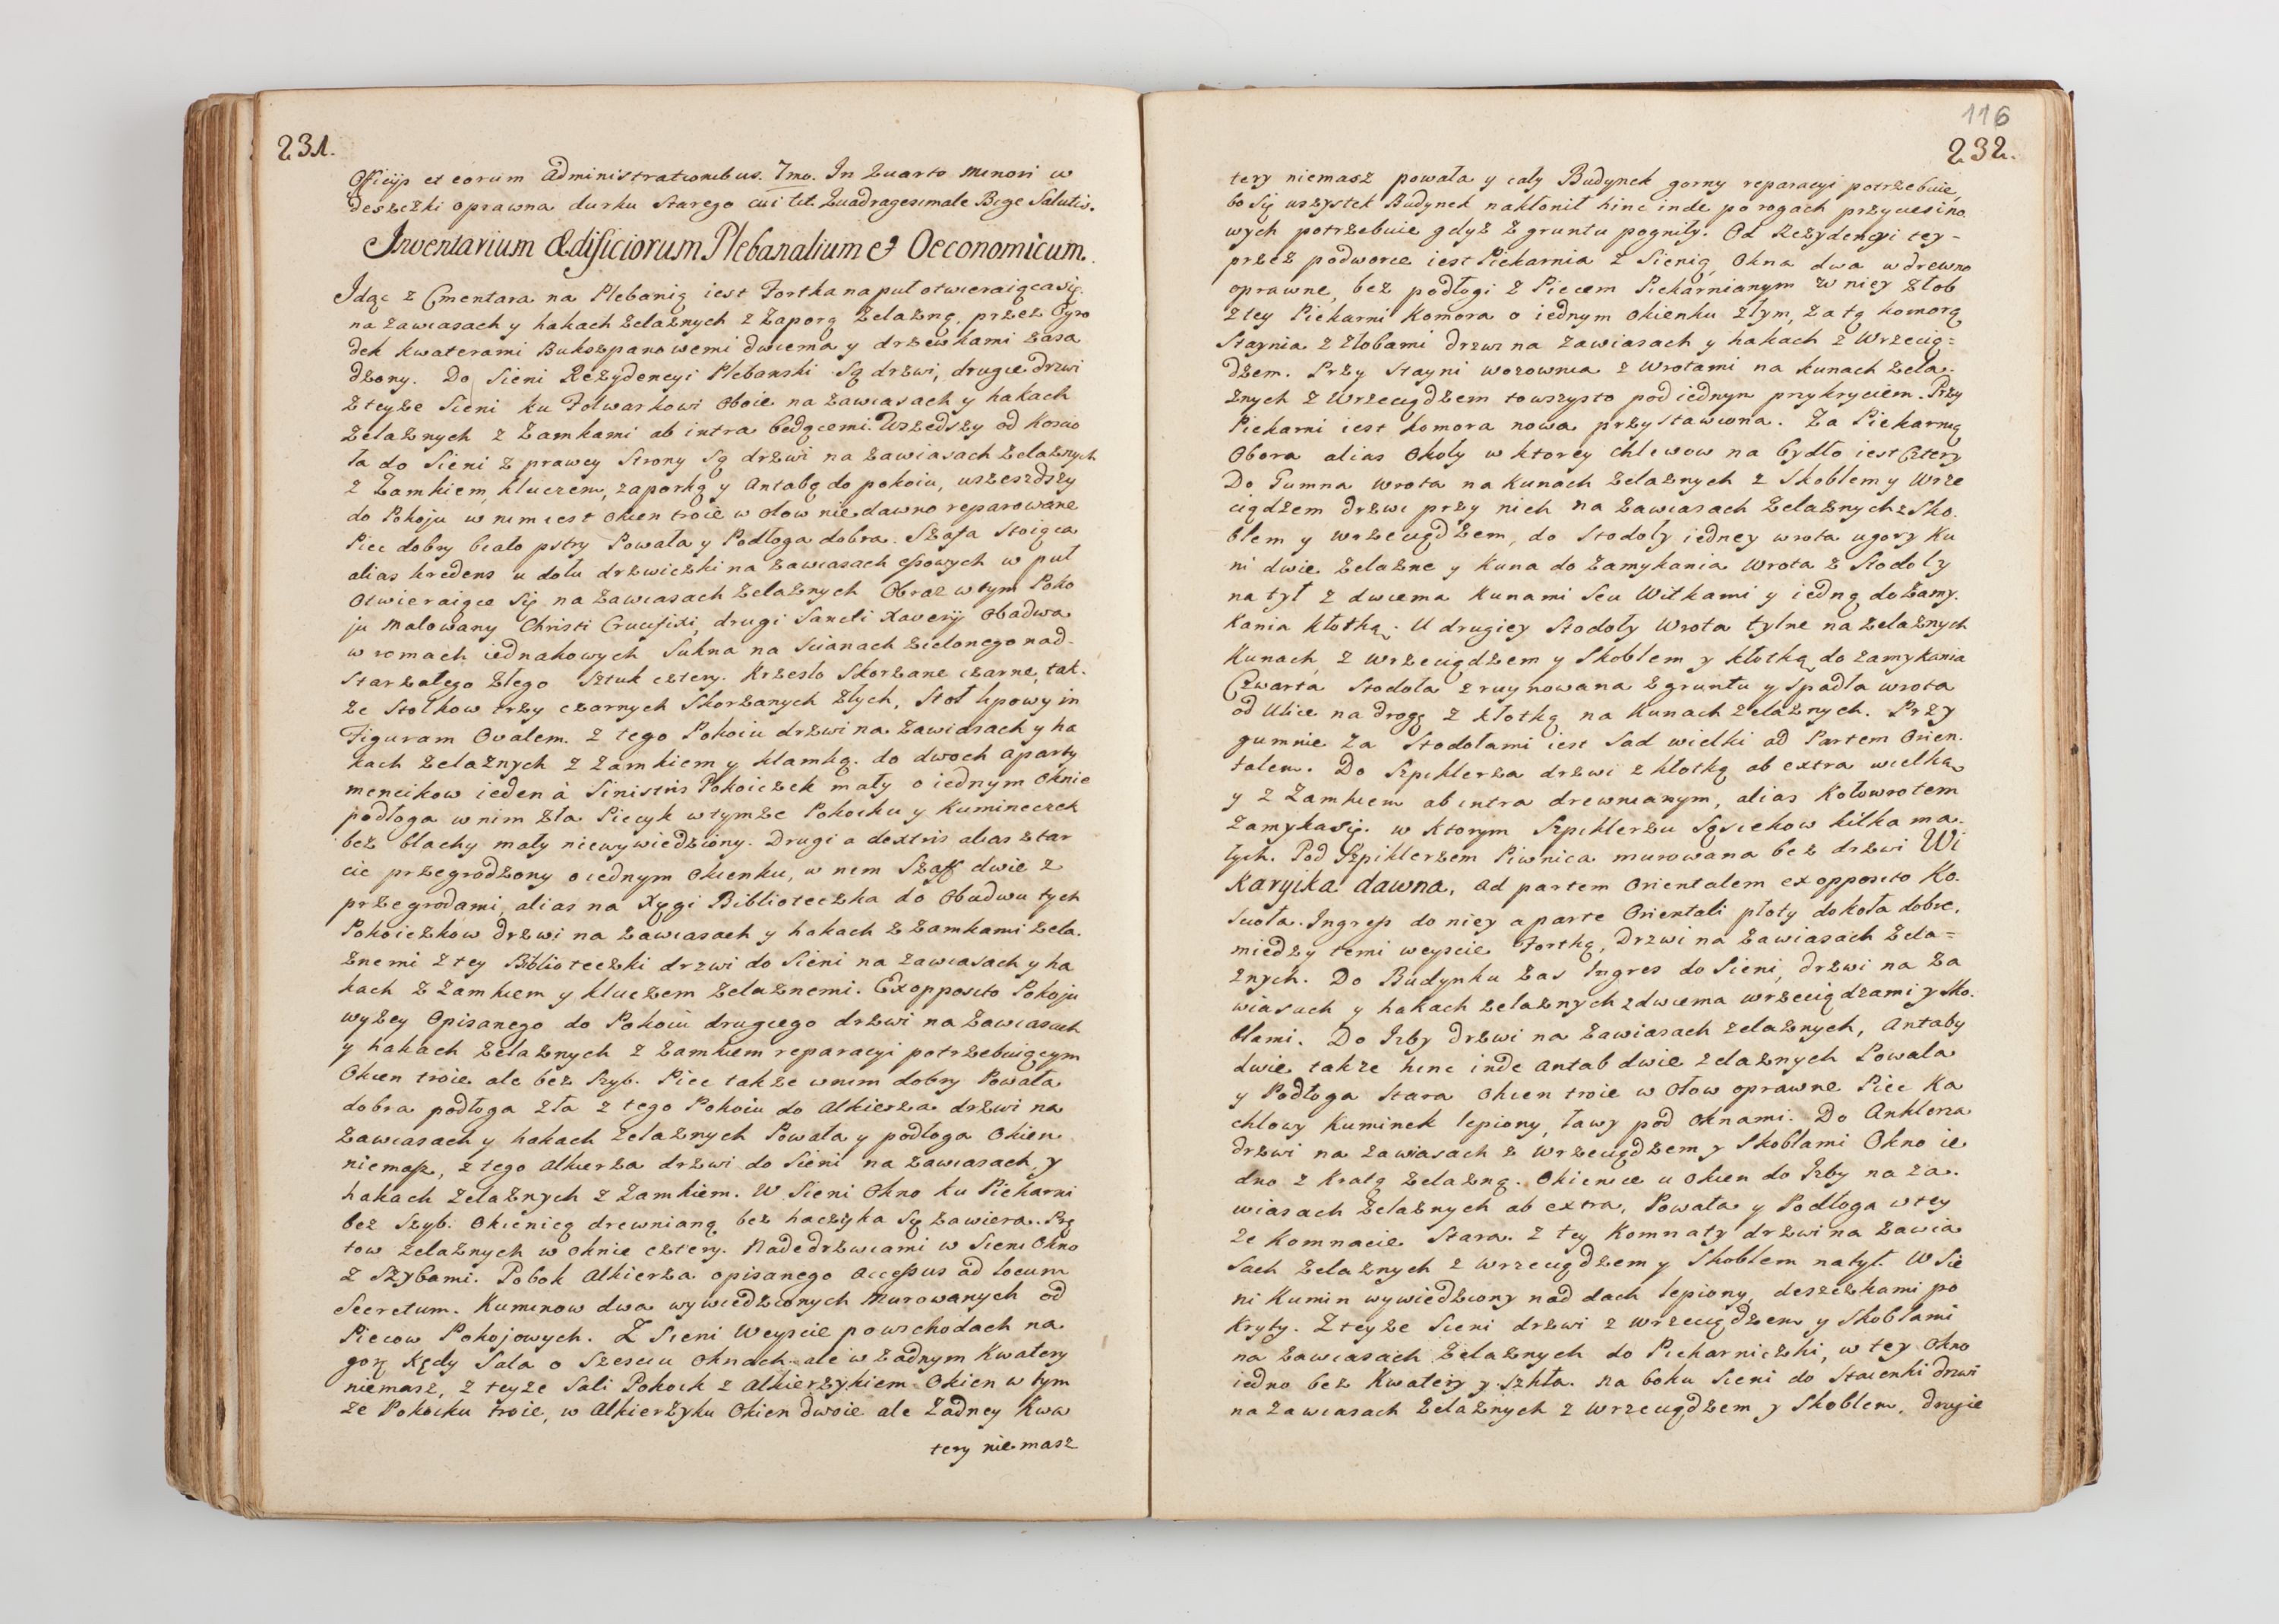 231.
Officijs et eorum Administrationibus. 7mo. In Quarto Minori w
deszczki oprawna durku Starego cui tit. Quadragesimale Bige Salutis.
Inventarium Ædificiorum Plebanalium et Oeconomicum.
Idąc z Cmentara na Plebanią iest Fortka na puł otwieraiąca się
na zawiasach y hakach żelaznych z Zaporą Żelazną, przez Ogro
dek kwaterami Bukszpanowemi dwiema y drzewkami zasa
dzony. Do Sieni Rezydencyi Plebanski Są drzwi, drugie drzwi
z teyże Sieni ku Folwarkowi oboie na zawiasach y hakach
żelaznych z Zamkami ab intra będącemi. Wszedszy od Kościo
ła do Sieni z prawey Strony Są drzwi na zawiasach żelaznych
z Zamkiem, kluczem, zaporką y Antabą do pokoiu, uszeszdszy
do Pokoju w nim iest okien troie w ołow nie dawno reparowane
Piec dobry biało pstry Powała y Podłoga dobra. Szafa Stoiąca
alias kredens u dołu drzwiczki na zawiasach essowych w puł
Otwieraiące Się na Zawiasach Żelaznych Obraz w tym Poko
ju Malowany Christi Crucifixi, drugi Sancti Xaverij Obadwa
w ramach iednakowych Sukna na Scianach zielonego nad-
starzałego złego Sztuk cztery. Krzesło Skorzane czarne, tak-
że Stołkow trzy czarnych Skorzanych złych, Stoł lipowy in
Figuram Ovalem. z tego Pokoiu drzwi na Zawiasach y ha
kach żelaznych z zamkiem y klamką. do dwoch Aparty
mencikow ieden à Sinistris Pokoiczek mały o iednym Oknie
podłoga w nim zła Piecyk w tymże Pokoiku y Kumineczek
bez blachy mały niewywiedziony. Drugi a dextris alias ztar
cic przegrodzony o iednym okienku, w nem Szaff dwie z
przegrodami, alias na Xięgi Biblioteczka do Obudwu tych
Pokoiczkow drzwi na zawiasach y hakach z Zamkami żela-
znemi z tey Biblioteczki drzwi do Sieni na zawiasach y ha
kach z Zamkiem y kluczem żelaznemi. Ex opposito Pokoju
wyżey Opisanego do Pokoiu drugiego drzwi na Zawiasach
y hakach żelaznych z Zamkiem reparacyi potrzebuiącym
Okien troie ale bez Szyb. Piec także w nim dobry Powała
dobra podłoga zła z tego Pokoiu do Alkierza drzwi na
Zawiasach y hakach żelaznych Powała y podłoga Okien
niemasz, z tego Alkierza drzwi do Sieni na zawiasach y
hakach żelaznych z Zamkiem. W Sieni Okno ku Piekarni
bez Szyb. Okienicą drewnianą bez haczyka Się zawiera. Prę
tow żelaznych w oknie cztery. Nadedrzwiami w Sieni Okno
z Szybami. Pobok Alkierza opisanego Accessus ad locum
Secretum. Kuminow dwa wywiedzionych Murowanych od
Piecow Pokojowych. Z Sieni Weyscie po wschodach na
gorę kędy Sala o Szesciu Oknach, ale w żadnym Kwatery
niemasz, z teyże Sali Pokoik z Alkierzykiem Okien w tym
że Pokoiku troie, w Alkierzyku Okien dwoie ale Żadney Kwa
tery niemasz
116
232.
tery niemasz powała y cały Budynek gorny reparacyi potrzebuie,
bo Się wszystek Budynek nakłonił hinc inde po rogach przyciesino
wych potrzebuie gdyż z gruntu pogniły. Od Rezydencyi tey-
przez podworce iest Piekarnia z Sienią, Okna dwa w drewno
oprawne, bez podłogi z Piecem Piekarnianym w niey złob
z tey Piekarni Komora o iednym okienku złym, za tą komorą
Staynia z złobami drzwi na zawiasach y hakach z Wrzecią=
dzem. Przy Stayni wozownia z Wrotami na kunach żela-
znych z wrzeciądzem to wszysto pod iednym przykryciem. Przy
Piekarni iest komora nowa przystawiona. Za Piekarnią
Obora alias Okoły w ktorey chlewow na bydło iest Cztery
Do Gumna wrota na kunach żelaznych z Skoblem y Wrze
ciądzem drzwi przy nich na zawiasach żelaznych z Sko-
blem y wrzeciądzem, do Stodoły iedney wrota u gory Ku
ni dwie żelazne y kuna do zamykania Wrota z Stodoły
na tył z dwiema Kunami Seu Witkami y iedną do Zamy-
kania kłotką. U drugiey Stodoły Wrota tylne na żelaznych
Kunach, z wrzeciądzem y Skoblem y kłotką do zamykania
Czwarta Stodoła zruynowana z gruntu y spadła wrota
od Ulice na drogę z kłotką na kunach żelaznych. Przy
gumnie Za Stodołami iest Sad wielki ad Partem Orien-
talem. Do Szpiklerza drzwi z kłotką ab extra wielką
y z Zamkiem ab intra drewnianym, alias Kołowrotem
zamyka się. w ktorym Szpiklerzu Sąsiekow kilka ma-
łych. Pod Szpiklerzem Piwnica murowana bez drzwi Wi
karyika dawna, ad partem Orientalem ex opposito Ko-
scioła. Ingress do niey a parte Orientali płoty dokoła dobre,
miedzy temi weyscie Fortką, Drzwi na Zawiasach żela=
znych. Do Budynku zas Ingres do Sieni, drzwi na Za
wiasach y hakach żelaznych z dwiema wrzeciądzami y Sko-
blami. Do Izby drzwi na Zawiasach żelaznych, Antaby
dwie także hinc inde antab dwie żelaznych Powała
y Podłoga stara okien troie w Ołow oprawne Piec Ka
chlowy Kuminek lepiony, ławy pod Oknami. Do Anklerza
drzwi na zawiasach z wrzeciądzem y Skoblami Okno ie
dno z Kratą żelazną. Okienice u okien do Izby na za-
wiasach żelaznych ab extra, Powała y Podłoga w tey
że Komnacie Stara. z tey Komnaty drzwi na Zawia
sach żelaznych z wrzeciądzem y Skoblem na tył. W Sie
ni Kumin wywiedziony nad dach lepiony, deszczkami po
kryty. Z teyże Sieni drzwi z wrzeciądzem y Skoblami
na zawiasach żelaznych do Piekarniczki, w tey Okno
iedno bez Kwatery y Szkła. Na boku Sieni do Staienki drzwi
na zawiasach żelaznych z wrzeciądzem y Skoblem, drugie